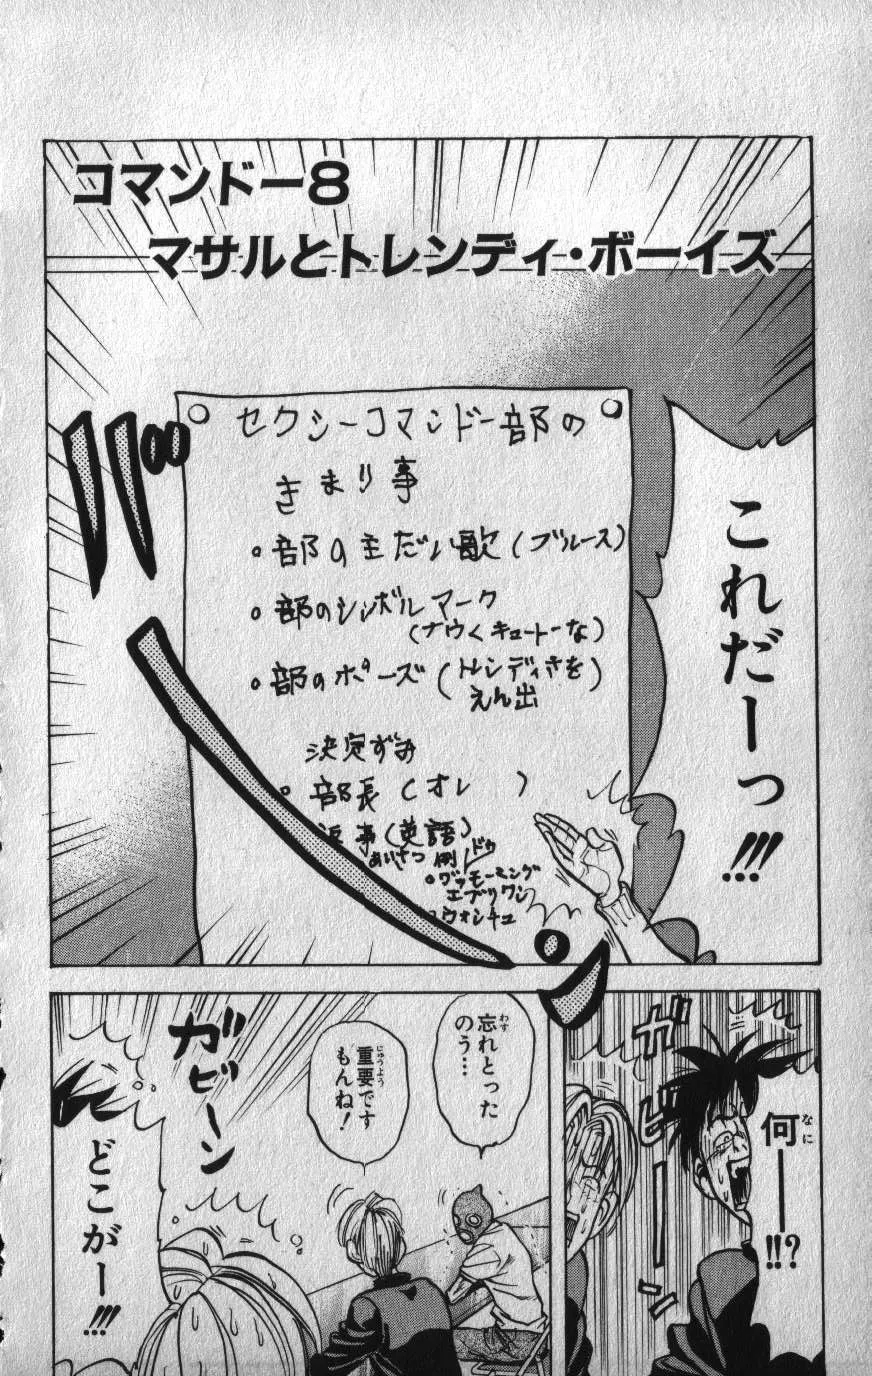 コマンドー8
マサルとトレンディ・ボーイズ
これだーっ!!!
バーン
セクシーコマンドー部の
きまり事
•部の主だい歌(ブルース)
•部のシンボルマーク
(ナウくキュートーな)
•部のポーズ(トレンディさを
えん出)
決定ずみ
•部長(オレ　)
返事(英語)
あいさつ 例 ドゥ
•グッモーニング
エブリワン
ウォンチュ
何――!!?
ガビーン
忘れとった
のう…
重要です
もんね!
ガビーン
どこがー!!!